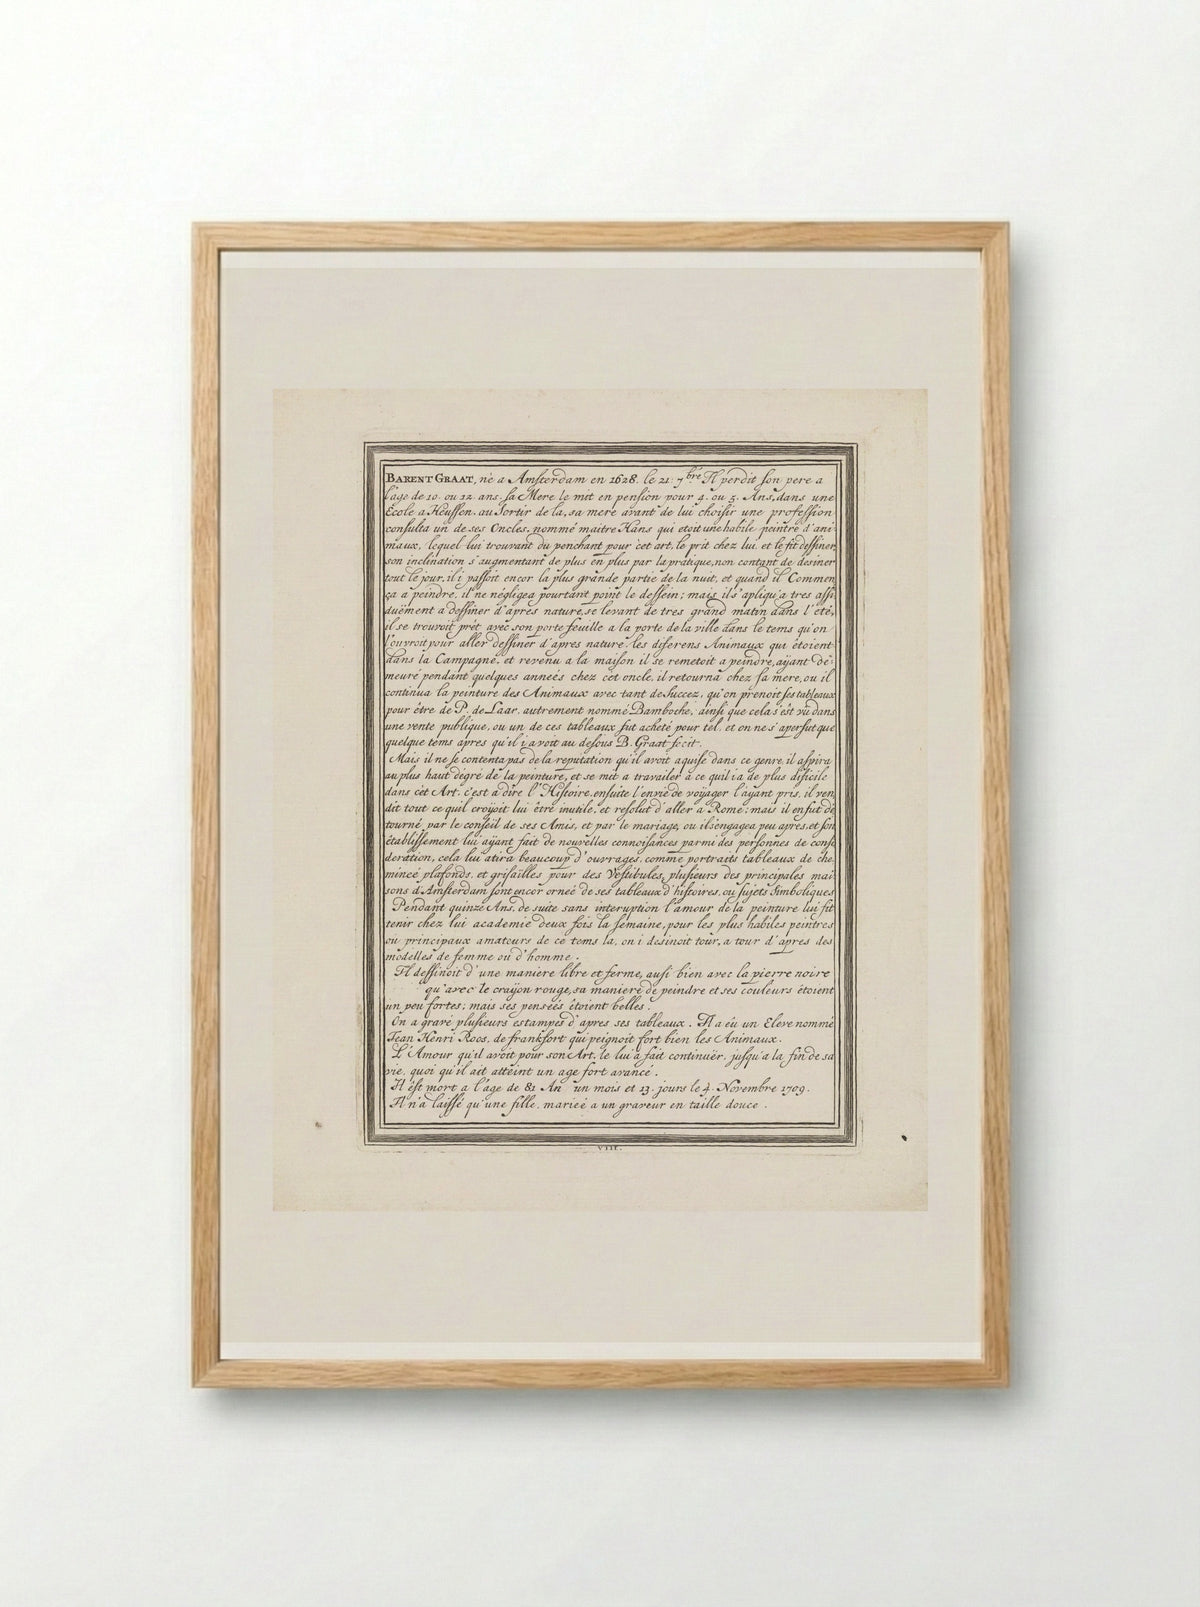 BARENT GRAAT, né a Amsterdam en 1628. le 21. 7bre Il perdit son pere a
l'age de 10. ou 12. ans. sa Mere le mit en pension pour 4. ou 5. Ans, dans une
Ecole a Heussen. au Sortir de la, sa mere avant de lui choisir une profession
consulta un de ses Oncles. nommé maitre Hans qui etoit une habile peintre d'ani
maux, lequel lui trouvant du penchant pour cet art, le prit chez lui. et le fit dessiner,
son inclination s'augmentant de plus en plus par la pratique, non contant de desiner
tout le jour, il i passoit encor la plus grande partie de la nuit, et quand il Commen
ça a peindre, il ne négligea pourtant point le dessein; mais il s'apliqu'a tres assi
duëment a dessiner d'apres nature, se levant de tres grand matin dans l'été,
il se trouvoit prêt avec son porte feuille a la porte de la ville dans le tems qu'on
l'ouvroit pour aller dessiner d'apres nature. les diferens Animaux qui étoient
dans la Campagne, et revenu a la maison il se remetoit a peindre, aÿant de
meuré pendant quelques anneés chez cet oncle, il retourna chez sa mere, ou il
continua la peinture des Animaux avec tant de Succez, qu'on prenoit ses tableaux
pour être de P. de Laar, autrement nommé Bamboche, ainsi que cela s'est vû dans
une vente publique, ou un de ces tableaux fut acheté pour tel, et on ne s'aperfut que
quelque tems apres qu'il i avoit au desous B. Graat fecit.
Mais il ne se contenta pas de la reputation qu'il avoit aquise dans ce genre, il aspira
au plus haut dègré de la peinture, et se mit a travailer a ce quil i a de plus dificile
dans cèt Art, c'est a dire l'Histoire, ensuite l'envie de voÿager l'aÿant pris, il ven
dit tout ce quil croÿoit lui être inutile, et resolut d'aller a Rome; mais il en fut dé
tourné, par le conseil de ses Amis, et par le mariage, ou il s'engagea peu apres, et son
ètablissement lui aÿant fait de nouvelles connoisances parmi des personnes de consi
deration, cela lui atira beaucoup d'ouvrages, comme portraits tableaux de che
mineé plafonds, et grisailles pour des Vestibules, plusieurs des principales mai
sons d'Amsterdam sont encor orneé de ses tableaux d'histoires, ou sujets Simboliques
Pendant quinze Ans, de suite sans interuption l'amour de la peinture lui fit
tenir chez lui academie deux fois la semaine, pour les plus habiles peintres
ou principaux amateurs de ce tems la, on i desinoit tour, a tour d'apres des
modelles de femme ou d'homme.
Il dessinoit d'une maniere libre et ferme, ausi bien avec la pierre noire
qu'avec le craÿon rouge, sa maniere de peindre et ses couleurs étoient
un peu fortes; mais ses penseés étoient belles.
On a gravé plusieurs estampes d'apres ses tableaux. Il a éu un Eleve nommé
Jean Henri Roos, de frankfort qui peignoit fort bien les Animaux.
L'Amour qu'il avoit pour son Art, le lui a fait continuër, jusqu'a la fin de sa
vie, quoi qu'il ait atteint un age fort avancé.
Il est mort a l'age de 81 An un mois et 13. jours le 4. Novembre 1709.
Il n'a laissé qu'une fille, marieé a un graveur en taille douce.
VIII.